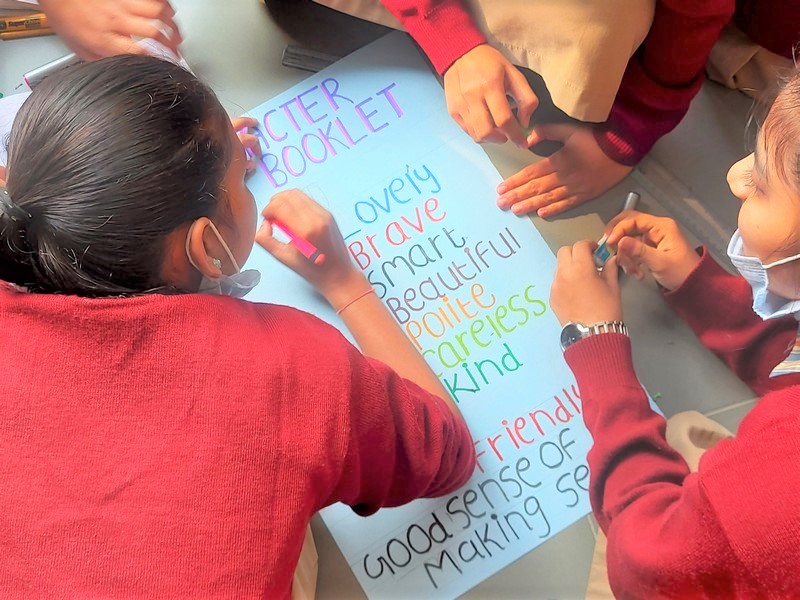 ACTER
BOOKLET
Lovely
Brave
Smart
Beautiful
Polite
Careless
kind
Friendly
Good sense of
Making se